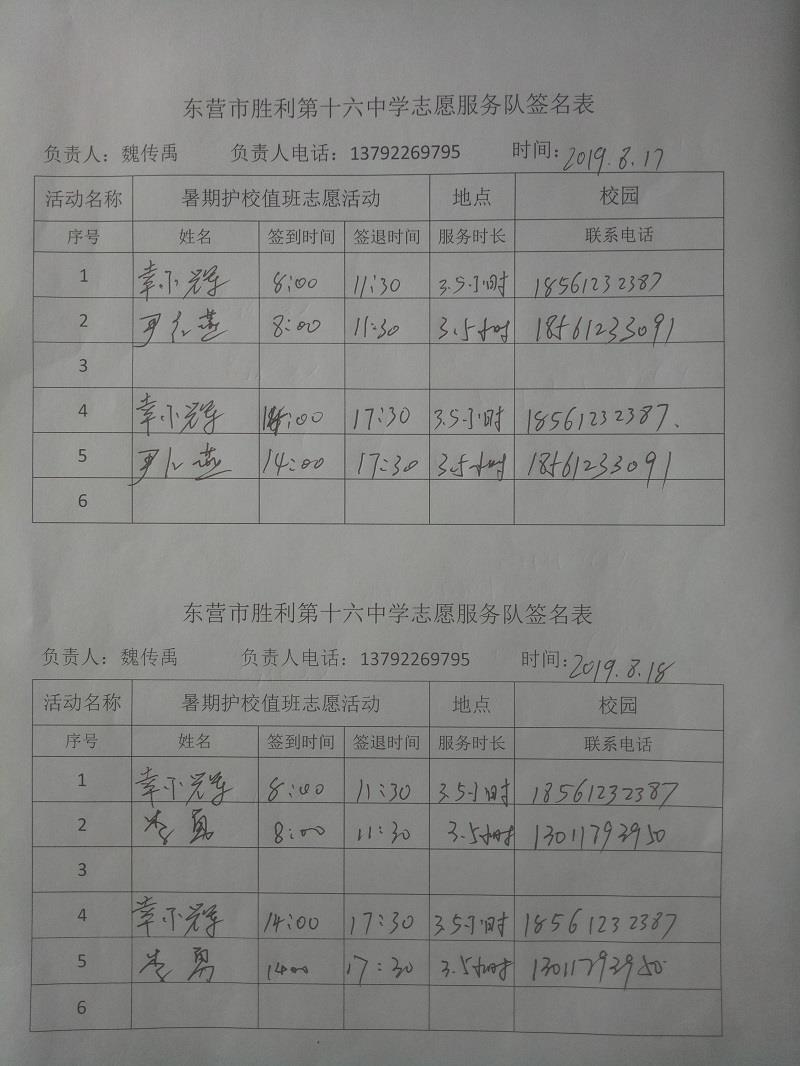 东营市胜利第十六中学志愿服务队签名表
负责人：魏传禹 负责人电话：13792269795 时间：2019.8.17
活动名称 暑期护校值班志愿活动 地点 校园
序号 姓名 签到时间 签退时间 服务时长 联系电话
1 8:00 11:30 3.5小时 18561232387
2 8:00 11:30 3.5小时 18561233091
3
4 14:00 17:30 3.5小时 18561232387.
5 14:00 17:30 3.5小时 18561233091
6
东营市胜利第十六中学志愿服务队签名表
负责人：魏传禹 负责人电话：13792269795 时间：2019.8.18
活动名称 暑期护校值班志愿活动 地点 校园
序号 姓名 签到时间 签退时间 服务时长 联系电话
1 8:00 11:30 3.5小时 18561232387
2 李勇 8:00 11:30 3.5小时 13011793950
3
4 14:00 17:30 3.5小时 18561232387
5 李勇 1400 17:30 3.5小时 13011793950
6